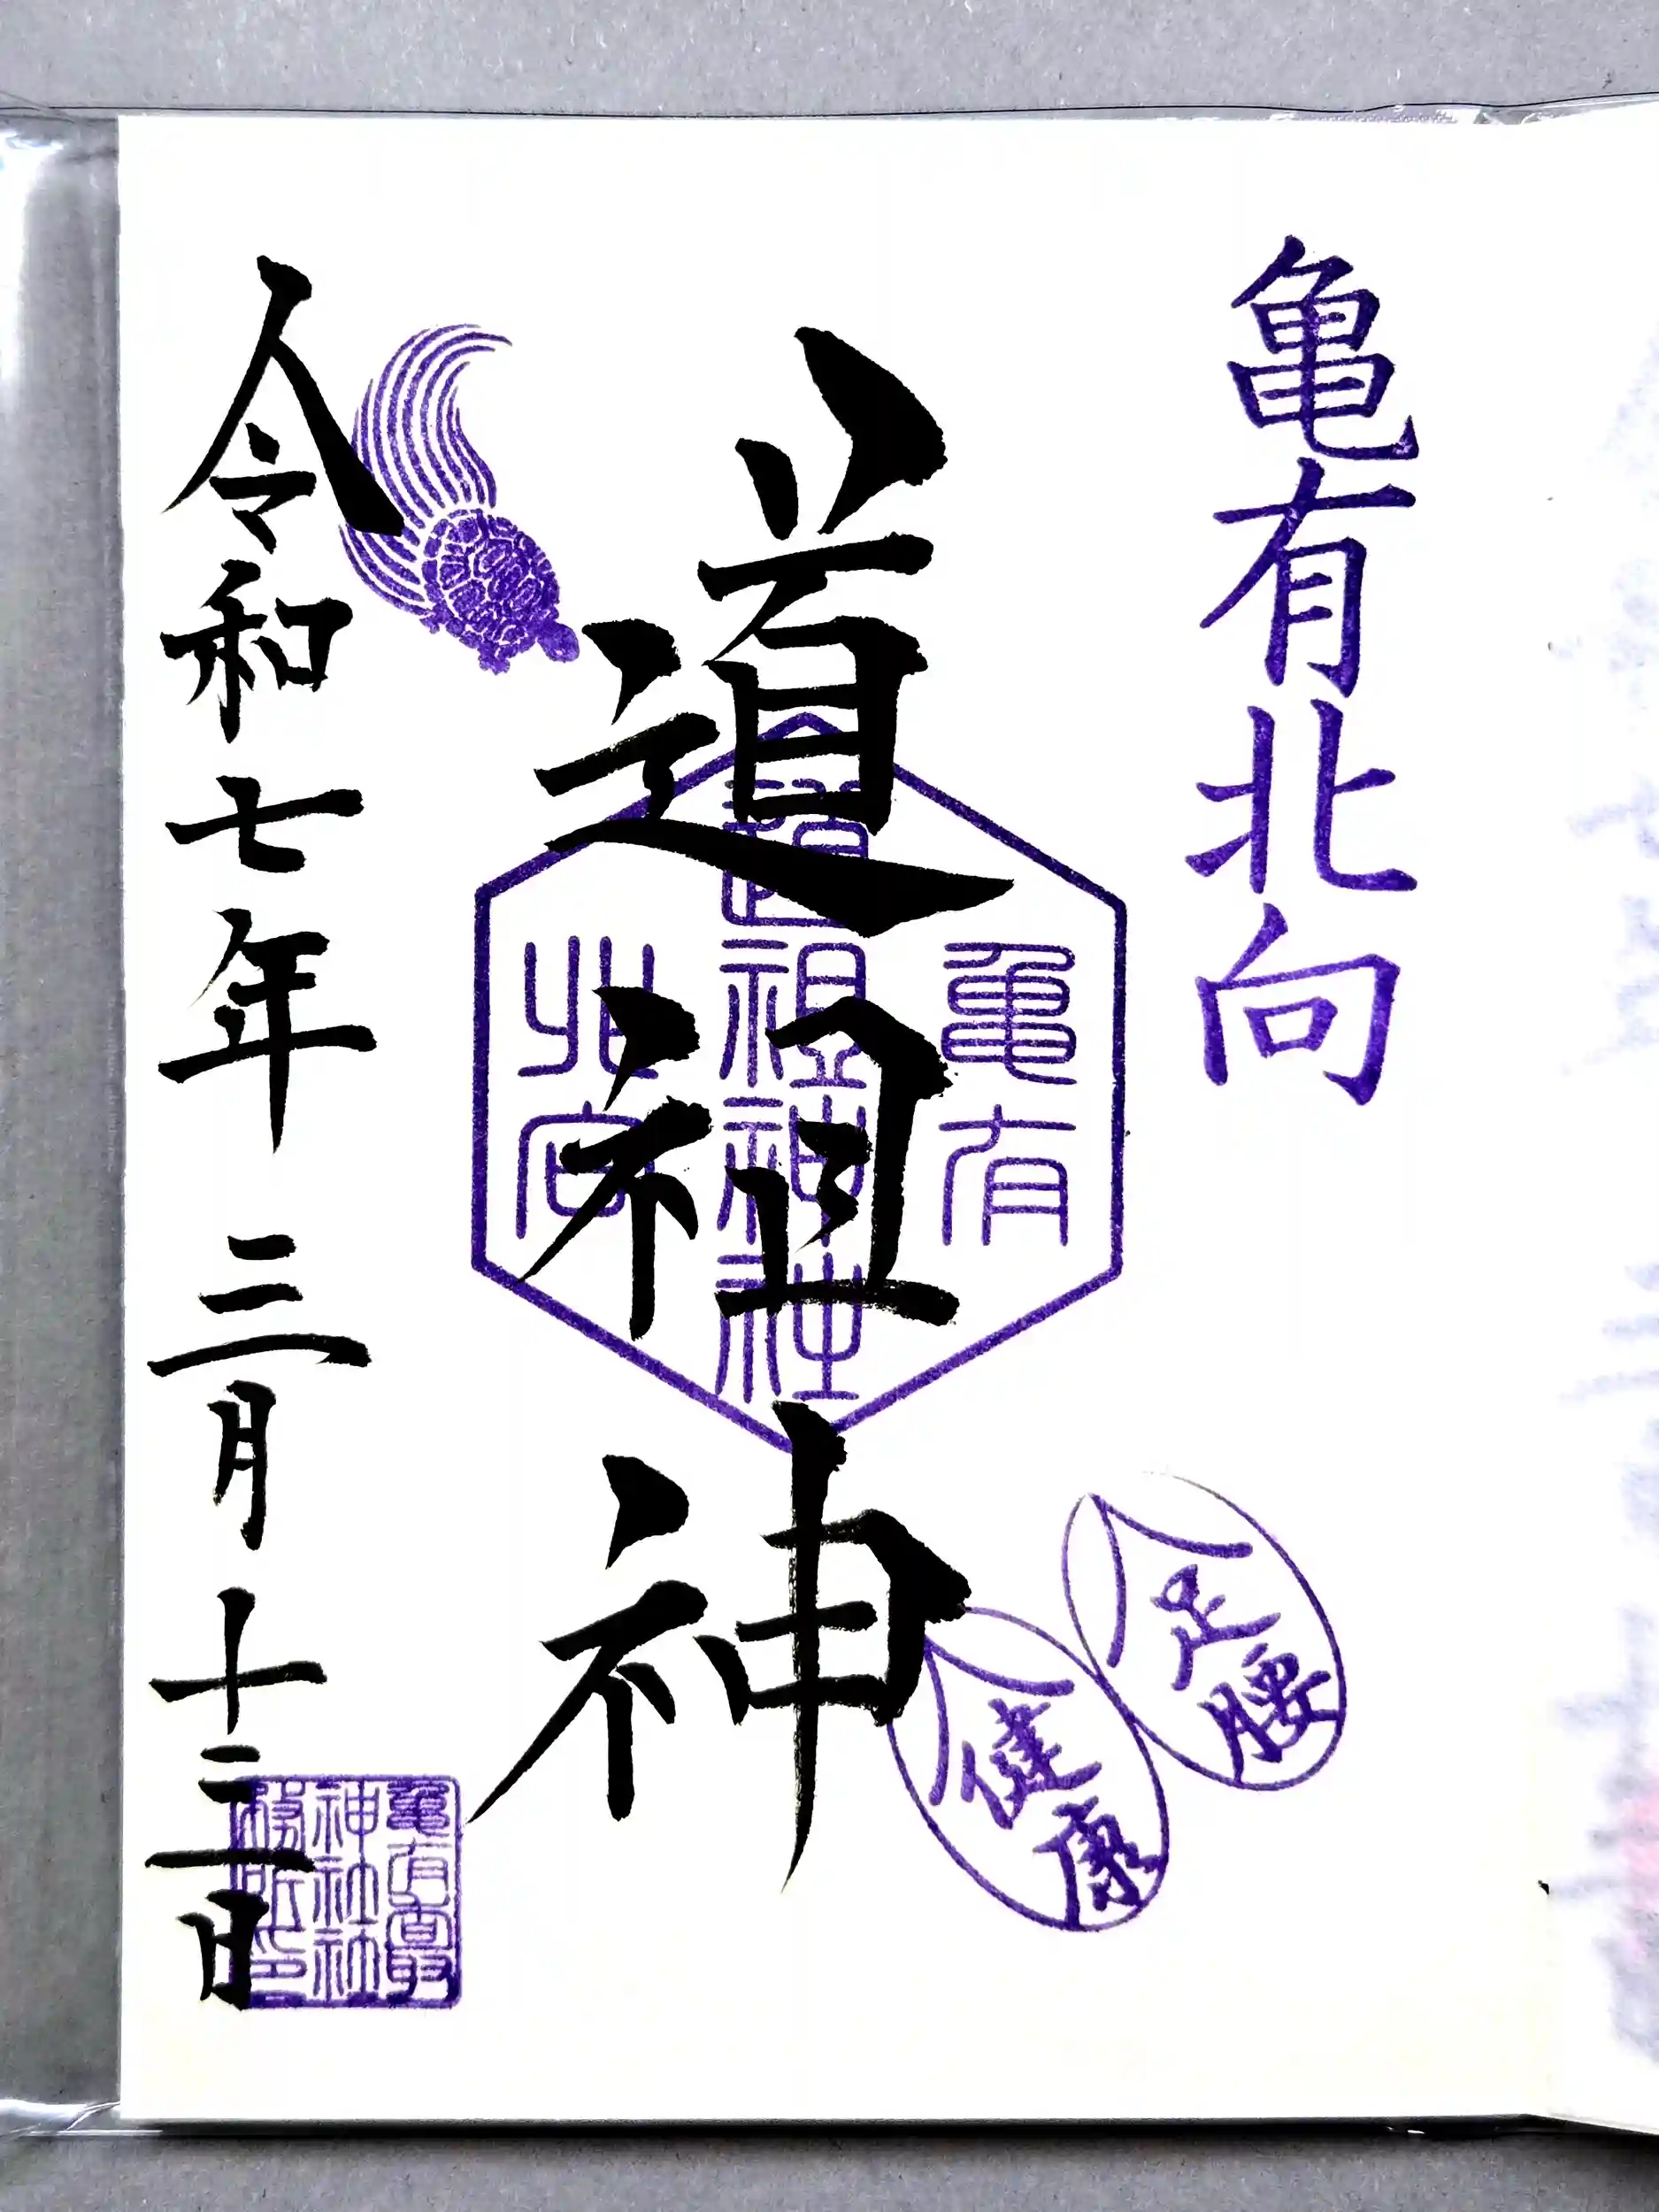 亀有北向
道祖神
令和七年 三月 十三日
亀有
道祖神社
北向
足腰
健康
亀有香取
神社社
務所印